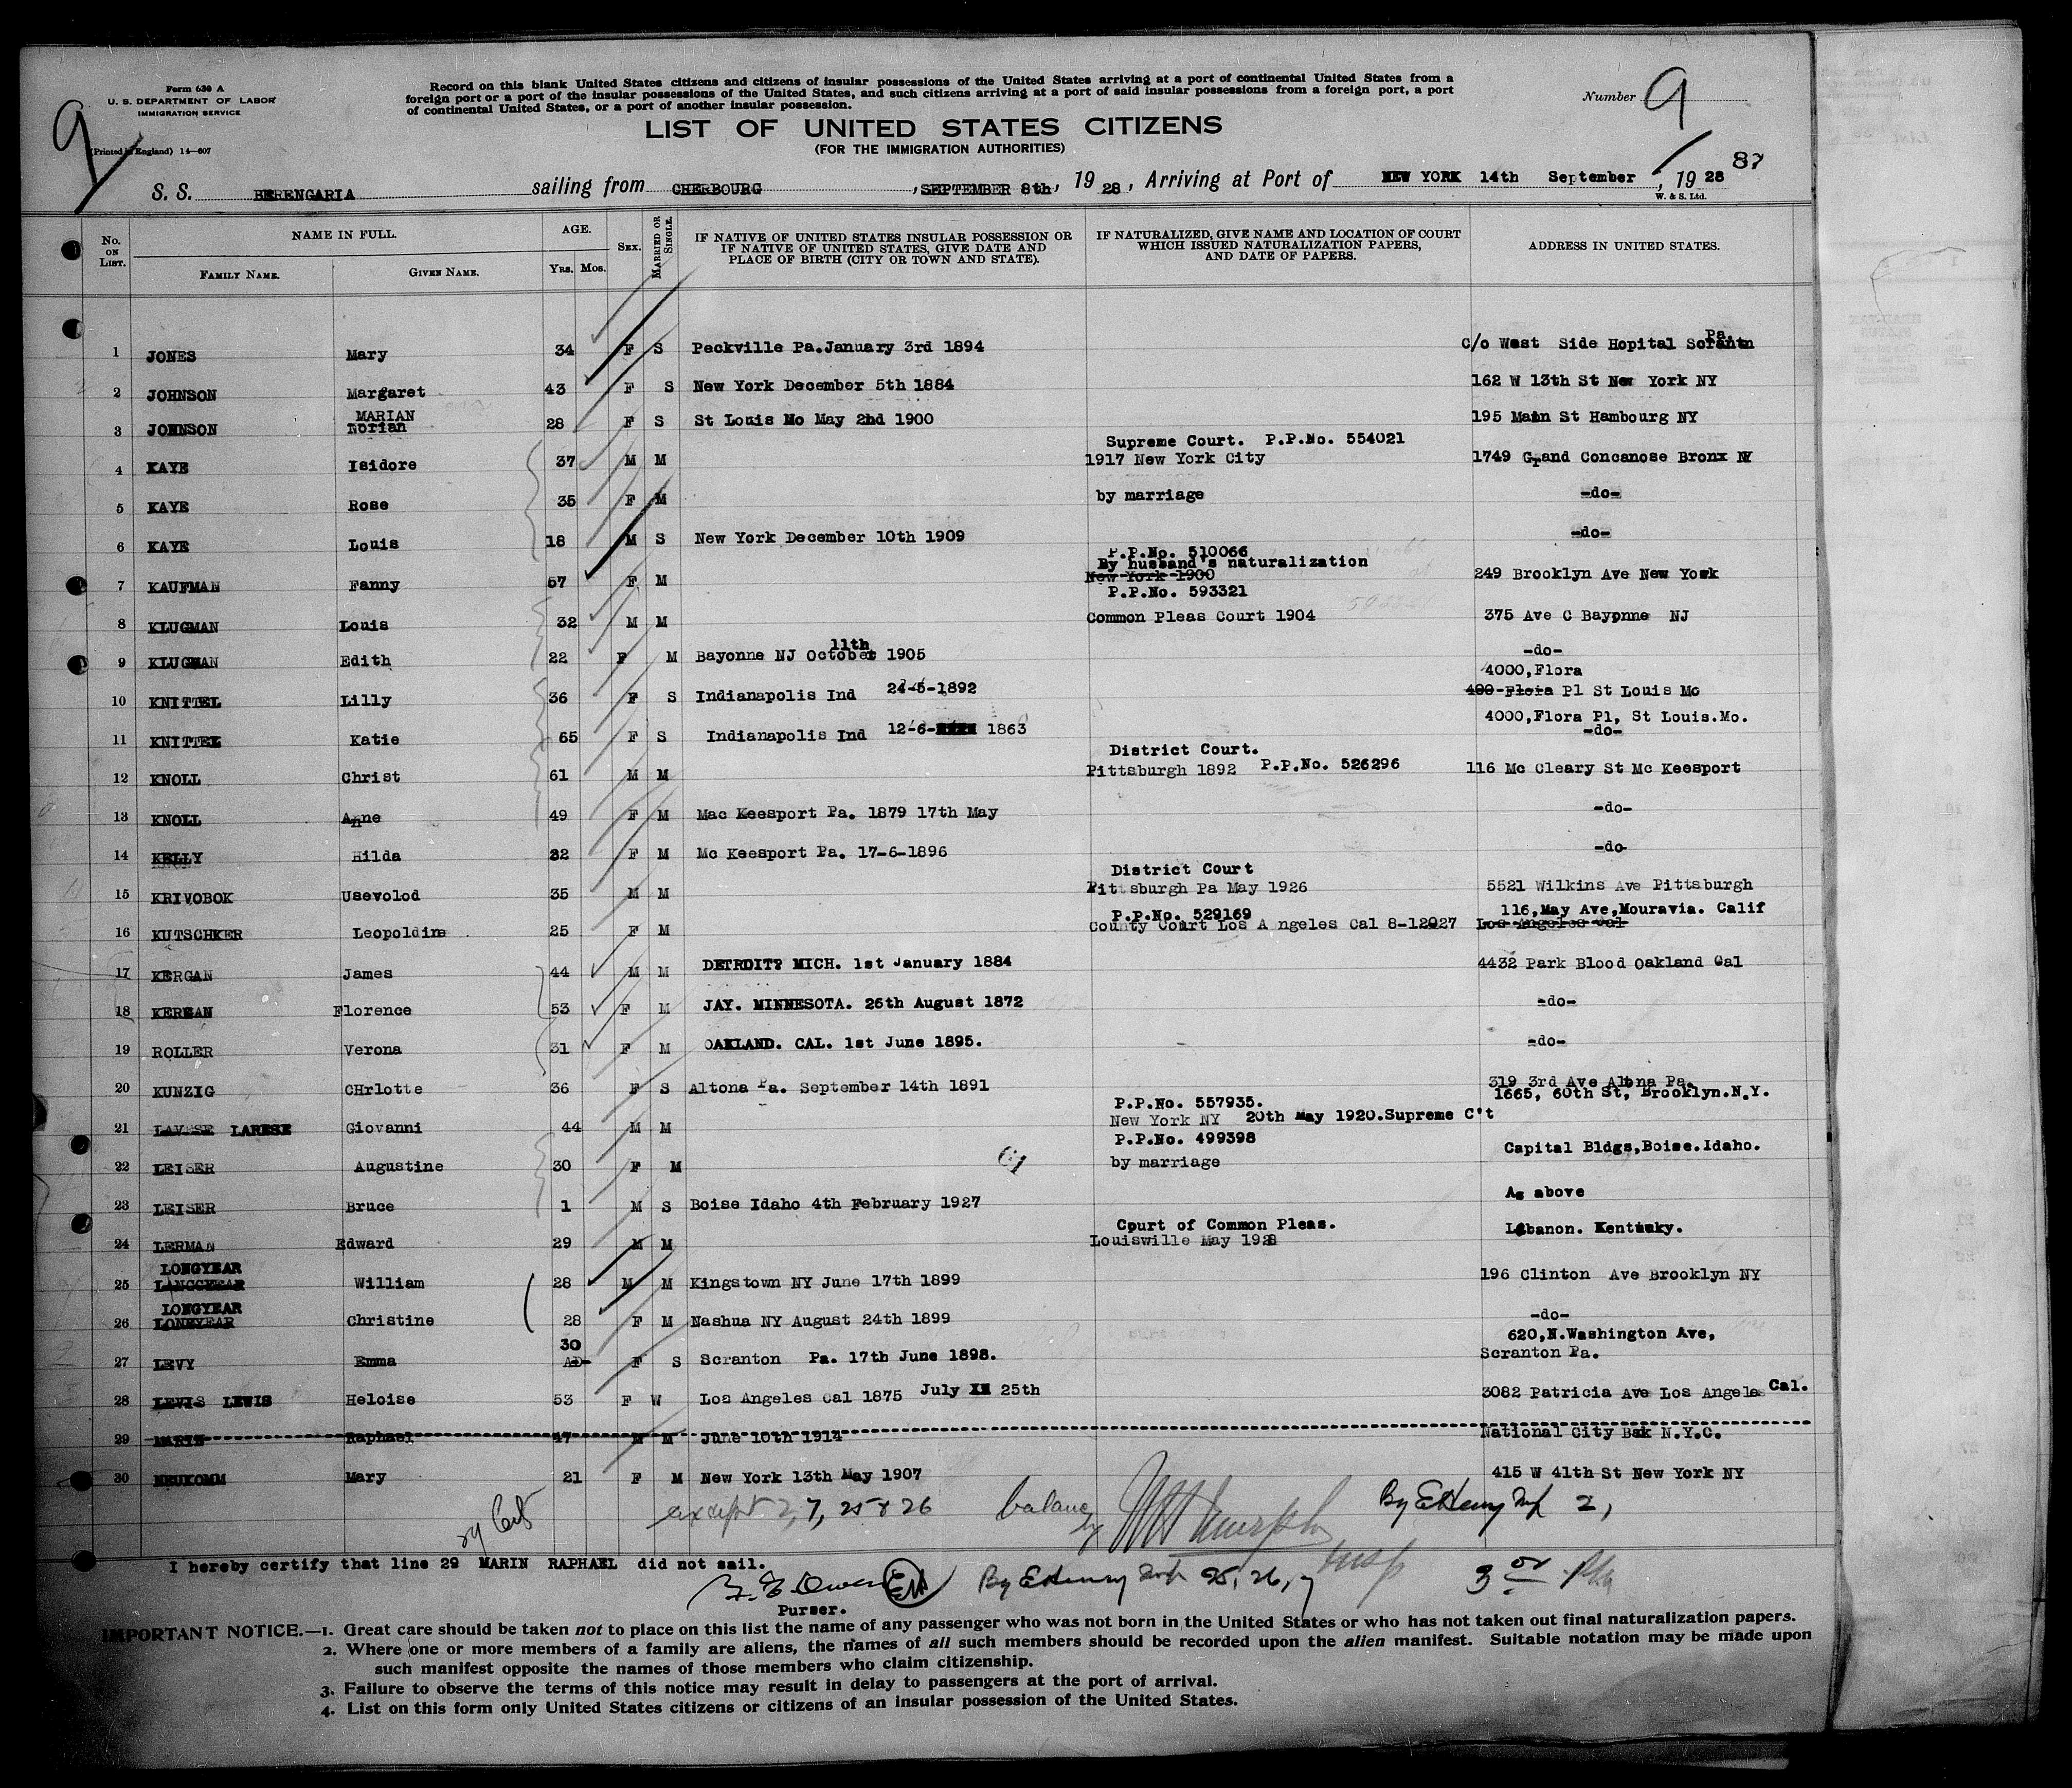 Form 630 A
U. S. DEPARTMENT OF LABOR
IMMIGRATION SERVICE
(Printed in England) 14—607
9
Record on this blank United States citizens and citizens of insular possessions of the United States arriving at a port of continental United States from a
foreign port or a port of the insular possessions of the United States, and such citizens arriving at a port of said insular possessions from a foreign port, a port
of continental United States, or a port of another insular possession.
Number 9
LIST OF UNITED STATES CITIZENS
(FOR THE IMMIGRATION AUTHORITIES)
87
S. S. BERENGARIA sailing from CHERBOURG, SEPTEMBER 8th, 19 28, Arriving at Port of NEW YORK 14th September, 19 28
W. & S. Ltd.
No. ON LIST. NAME IN FULL. FAMILY NAME. GIVEN NAME. AGE. YRS. MOS. SEX. MARRIED OR SINGLE. IF NATIVE OF UNITED STATES INSULAR POSSESSION OR IF NATIVE OF UNITED STATES, GIVE DATE AND PLACE OF BIRTH (CITY OR TOWN AND STATE). IF NATURALIZED, GIVE NAME AND LOCATION OF COURT WHICH ISSUED NATURALIZATION PAPERS, AND DATE OF PAPERS. ADDRESS IN UNITED STATES.
Pa.
1 JONES Mary 34 F S Peckville Pa.January 3rd 1894 c/o West Side Hopital Scrantn
2 JOHNSON Margaret 43 F S New York December 5th 1884 162 W 13th St New York NY
MARIAN
3 JOHNSON Dorian 28 F S St Louis Mo May 2nd 1900 195 Main St Hambourg NY
Supreme Court. P.P.No. 554021
4 KAYE Isidore 37 M M 1917 New York City 1749 Grand Concanose Bronx NY
5 KAYE Rose 35 F M by marriage -do-
6 KAYE Louis 18 M S New York December 10th 1909 -do-
P.P.No. 510066
By husband's naturalization
7 KAUFMAN Fanny 57 F M New York 1900 249 Brooklyn Ave New York
P.P.No. 593321
8 KLUGMAN Louis 32 M M Common Pleas Court 1904 375 Ave C Bayonne NJ
11th
9 KLUGMAN Edith 22 F M Bayonne NJ October 1905 -do-
4000,Flora
10 KNITTEL Lilly 36 F S Indianapolis Ind 24-5-1892 400 Flora Pl St Louis Mo
4000,Flora Pl, St Louis.Mo.
11 KNITTEL Katie 65 F S Indianapolis Ind 12-6- 1863 -do-
District Court.
12 KNOLL Christ 61 M M Pittsburgh 1892 P.P.No. 526296 116 Mc Cleary St Mc Keesport
13 KNOLL Anne 49 F M Mac Keesport Pa. 1879 17th May -do-
14 KELLY Hilda 32 F M Mc Keesport Pa. 17-6-1896 -do-
District Court
15 KRIVOBOK Usevolod 35 M M Pittsburgh Pa May 1926 5521 Wilkins Ave Pittsburgh
P.P.No. 529169 116,May Ave,Mouravia. Calif
16 KUTSCHKER Leopoldine 25 F M County Court Los A ngeles Cal 8-12027 Los Angeles Cal
17 KERGAN James 44 M M DETROIT? MICH. 1st January 1884 4432 Park Blood Oakland Cal
18 KERGAN Florence 53 F M JAY. MINNESOTA. 26th August 1872 -do-
19 ROLLER Verona 31 F M OAKLAND. CAL. 1st June 1895. -do-
20 KUNZIG CHrlotte 36 F S Altona Pa. September 14th 1891 319 3rd Ave Altona Pa.
P.P.No. 557935. 1665, 60th St, Brooklyn.N.Y.
21 LAVESE LARESE Giovanni 44 M M New York NY 20th May 1920.Supreme C't
P.P.No. 499398 Capital Bldgs,Boise.Idaho.
22 LEISER Augustine 30 F M by marriage
61
23 LEISER Bruce 1 M S Boise Idaho 4th February 1927 As above
Court of Common Pleas. Lebanon. Kentucky.
24 LERMAN Edward 29 M M Louiswille May 1928
LONGYEAR
25 William 28 M M Kingstown NY June 17th 1899 196 Clinton Ave Brooklyn NY
LONGYEAR
26 LONEYEAR Christine 28 F M Nashua NY August 24th 1899 -do-
30 620,N.Washington Ave,
27 LEVY Emma AD F S Scranton Pa. 17th June 1898. Scranton Pa.
28 LEVIS LEWIS Heloise 53 F W Los Angeles Cal 1875 July 25th 3082 Patricia Ave Los Angeles Cal.
29 MARIN Raphael 47 M M June 10th 1914 National City Bak N.Y.C.
30 NEUKOMM Mary 21 F M New York 13th May 1907 415 W 41th St New York NY
except 2, 7, 25 & 26 balance by Murphy Insp By E Henry Insp 2,
I hereby certify that line 29 MARIN RAPHAEL did not sail.
By E Henry Insp 25, 26, 7
Purser.
IMPORTANT NOTICE.—1. Great care should be taken not to place on this list the name of any passenger who was not born in the United States or who has not taken out final naturalization papers.
2. Where one or more members of a family are aliens, the names of all such members should be recorded upon the alien manifest. Suitable notation may be made upon
such manifest opposite the names of those members who claim citizenship.
3. Failure to observe the terms of this notice may result in delay to passengers at the port of arrival.
4. List on this form only United States citizens or citizens of an insular possession of the United States.